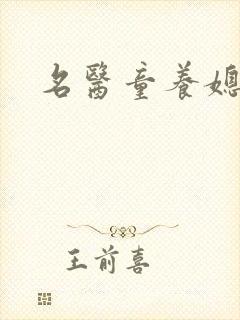 名醫童養媳
王前喜